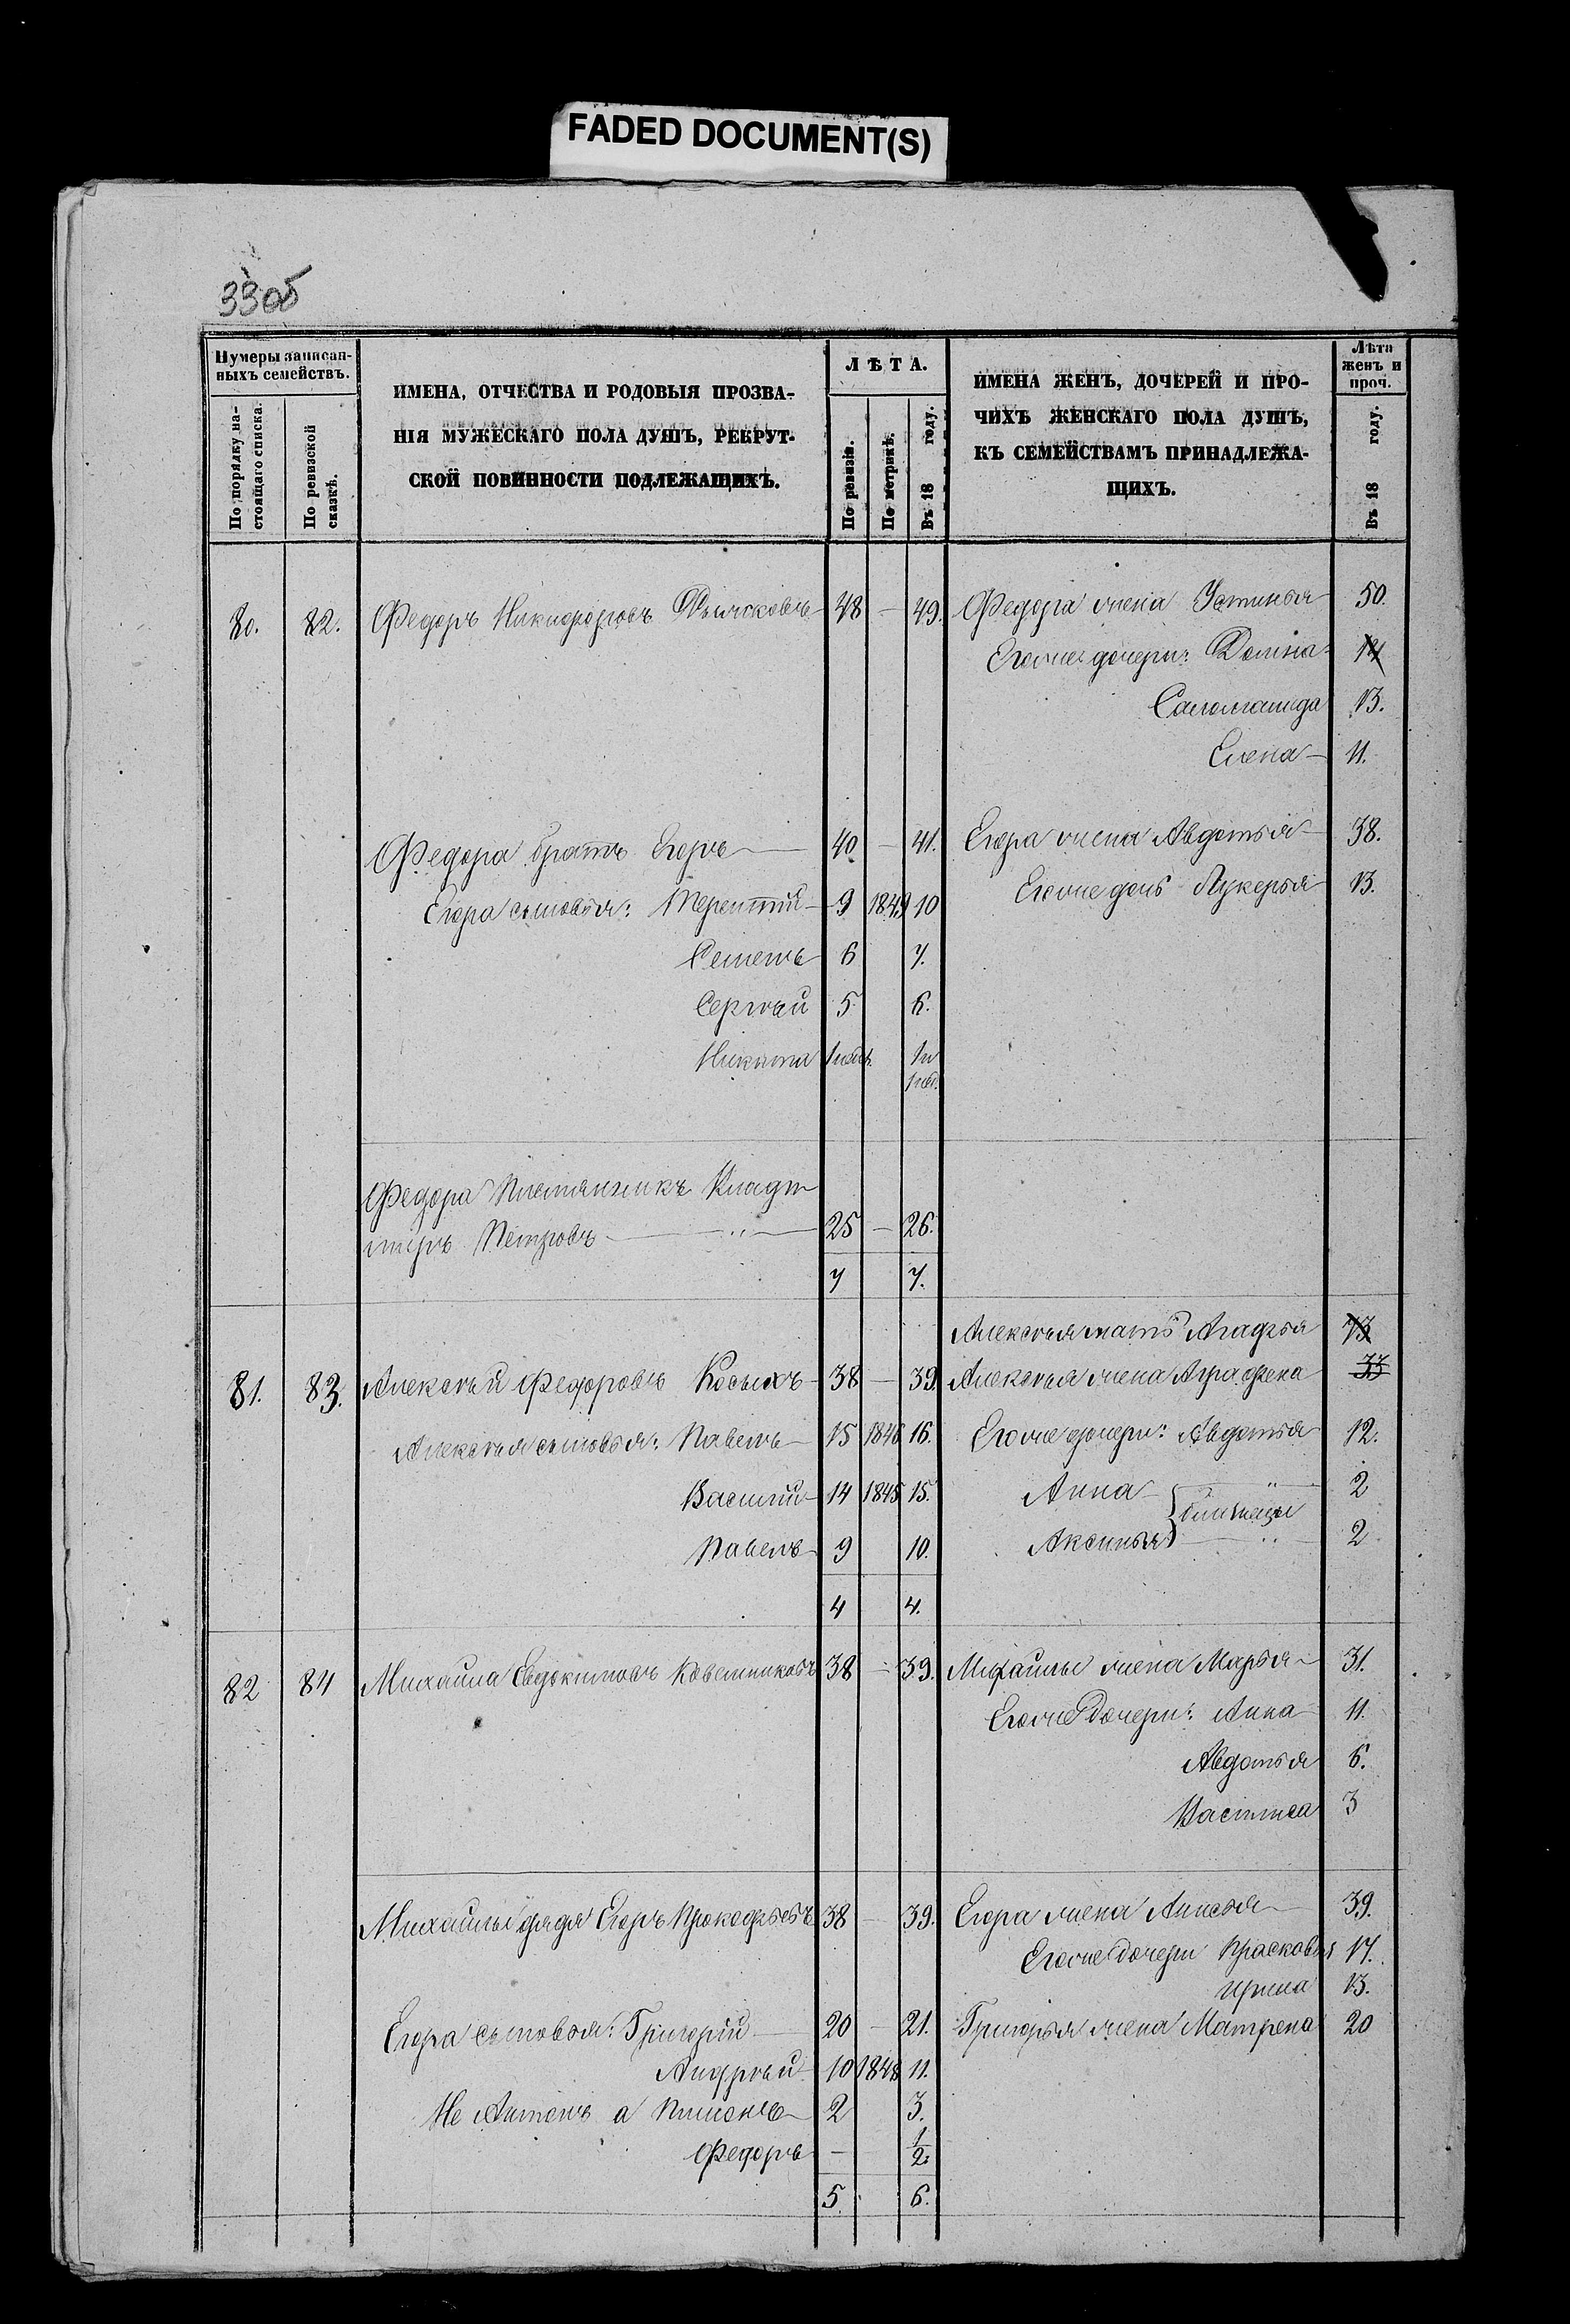 FADED DOCUMENT(S)
33об
Нумеры записан-
ныхъ семействъ.
По порядку на-
стоящаго списка.
По ревизской
сказкѣ.
ИМЕНА, ОТЧЕСТВА И РОДОВЫЯ ПРОЗВА-
НІЯ МУЖЕСКАГО ПОЛА ДУШЪ, РЕКРУТ-
СКОЙ ПОВИННОСТИ ПОДЛЕЖАЩИХЪ.
ЛѢТА.
По ревизіи.
По метрикѣ.
Въ 18 году.
ИМЕНА ЖЕНЪ, ДОЧЕРЕЙ И ПРО-
ЧИХЪ ЖЕНСКАГО ПОЛА ДУШЪ,
КЪ СЕМЕЙСТВАМЪ ПРИНАДЛЕЖА-
ЩИХЪ.
Лѣта
женъ и
проч.
Въ 18 году.
80. 82. Федоръ Никифоровъ 48 — 49. Федора жена Устинья 50.
Егоже дочери: Домна 14
Саломанида 13.
Елена — 11.
Федора братъ Егоръ — 40 — 41. Егора жена Авдотья — 38.
Егора сыновья: Терентій — 9 1849 10 Егоже дочь Лукерья 13.
Семенъ 6 7.
Сергѣй 5 6.
Никита
Федора племянникъ Влади
миръ Петровъ — " — 25 — 26.
7 7.
Алексѣя мать Агафья 73
81. 83. Алексѣй Федоровъ Косыхъ — 38 — 39. Алексѣя жена Аграфена 33
Алексѣя сыновья: Павелъ — 15 1846 16. Егоже дочери: Авдотья 12.
Василій — 14 1845 15. Анна — " 2
близнецы
Павелъ 9 10. Аксинья — " — 2
4 4.
82 84 Михаила Евдокимовъ 38 — 39. Михаилы жена Марья — 31.
Егоже дочери: Анна 11.
Авдотья 6.
Василиса 3
Михаилы дядя Егоръ Прокофьевъ 38 — 39. Егора жена Анисья — 39.
Егоже дочери Прасковья 17.
Ирина 13.
Егора сыновья: Григорій — 20 — 21. Григорья жена Матрена 20
Андрѣй 10 1848 11.
Не Антонъ а 2 3.
Федоръ — 1/2.
5. 6.